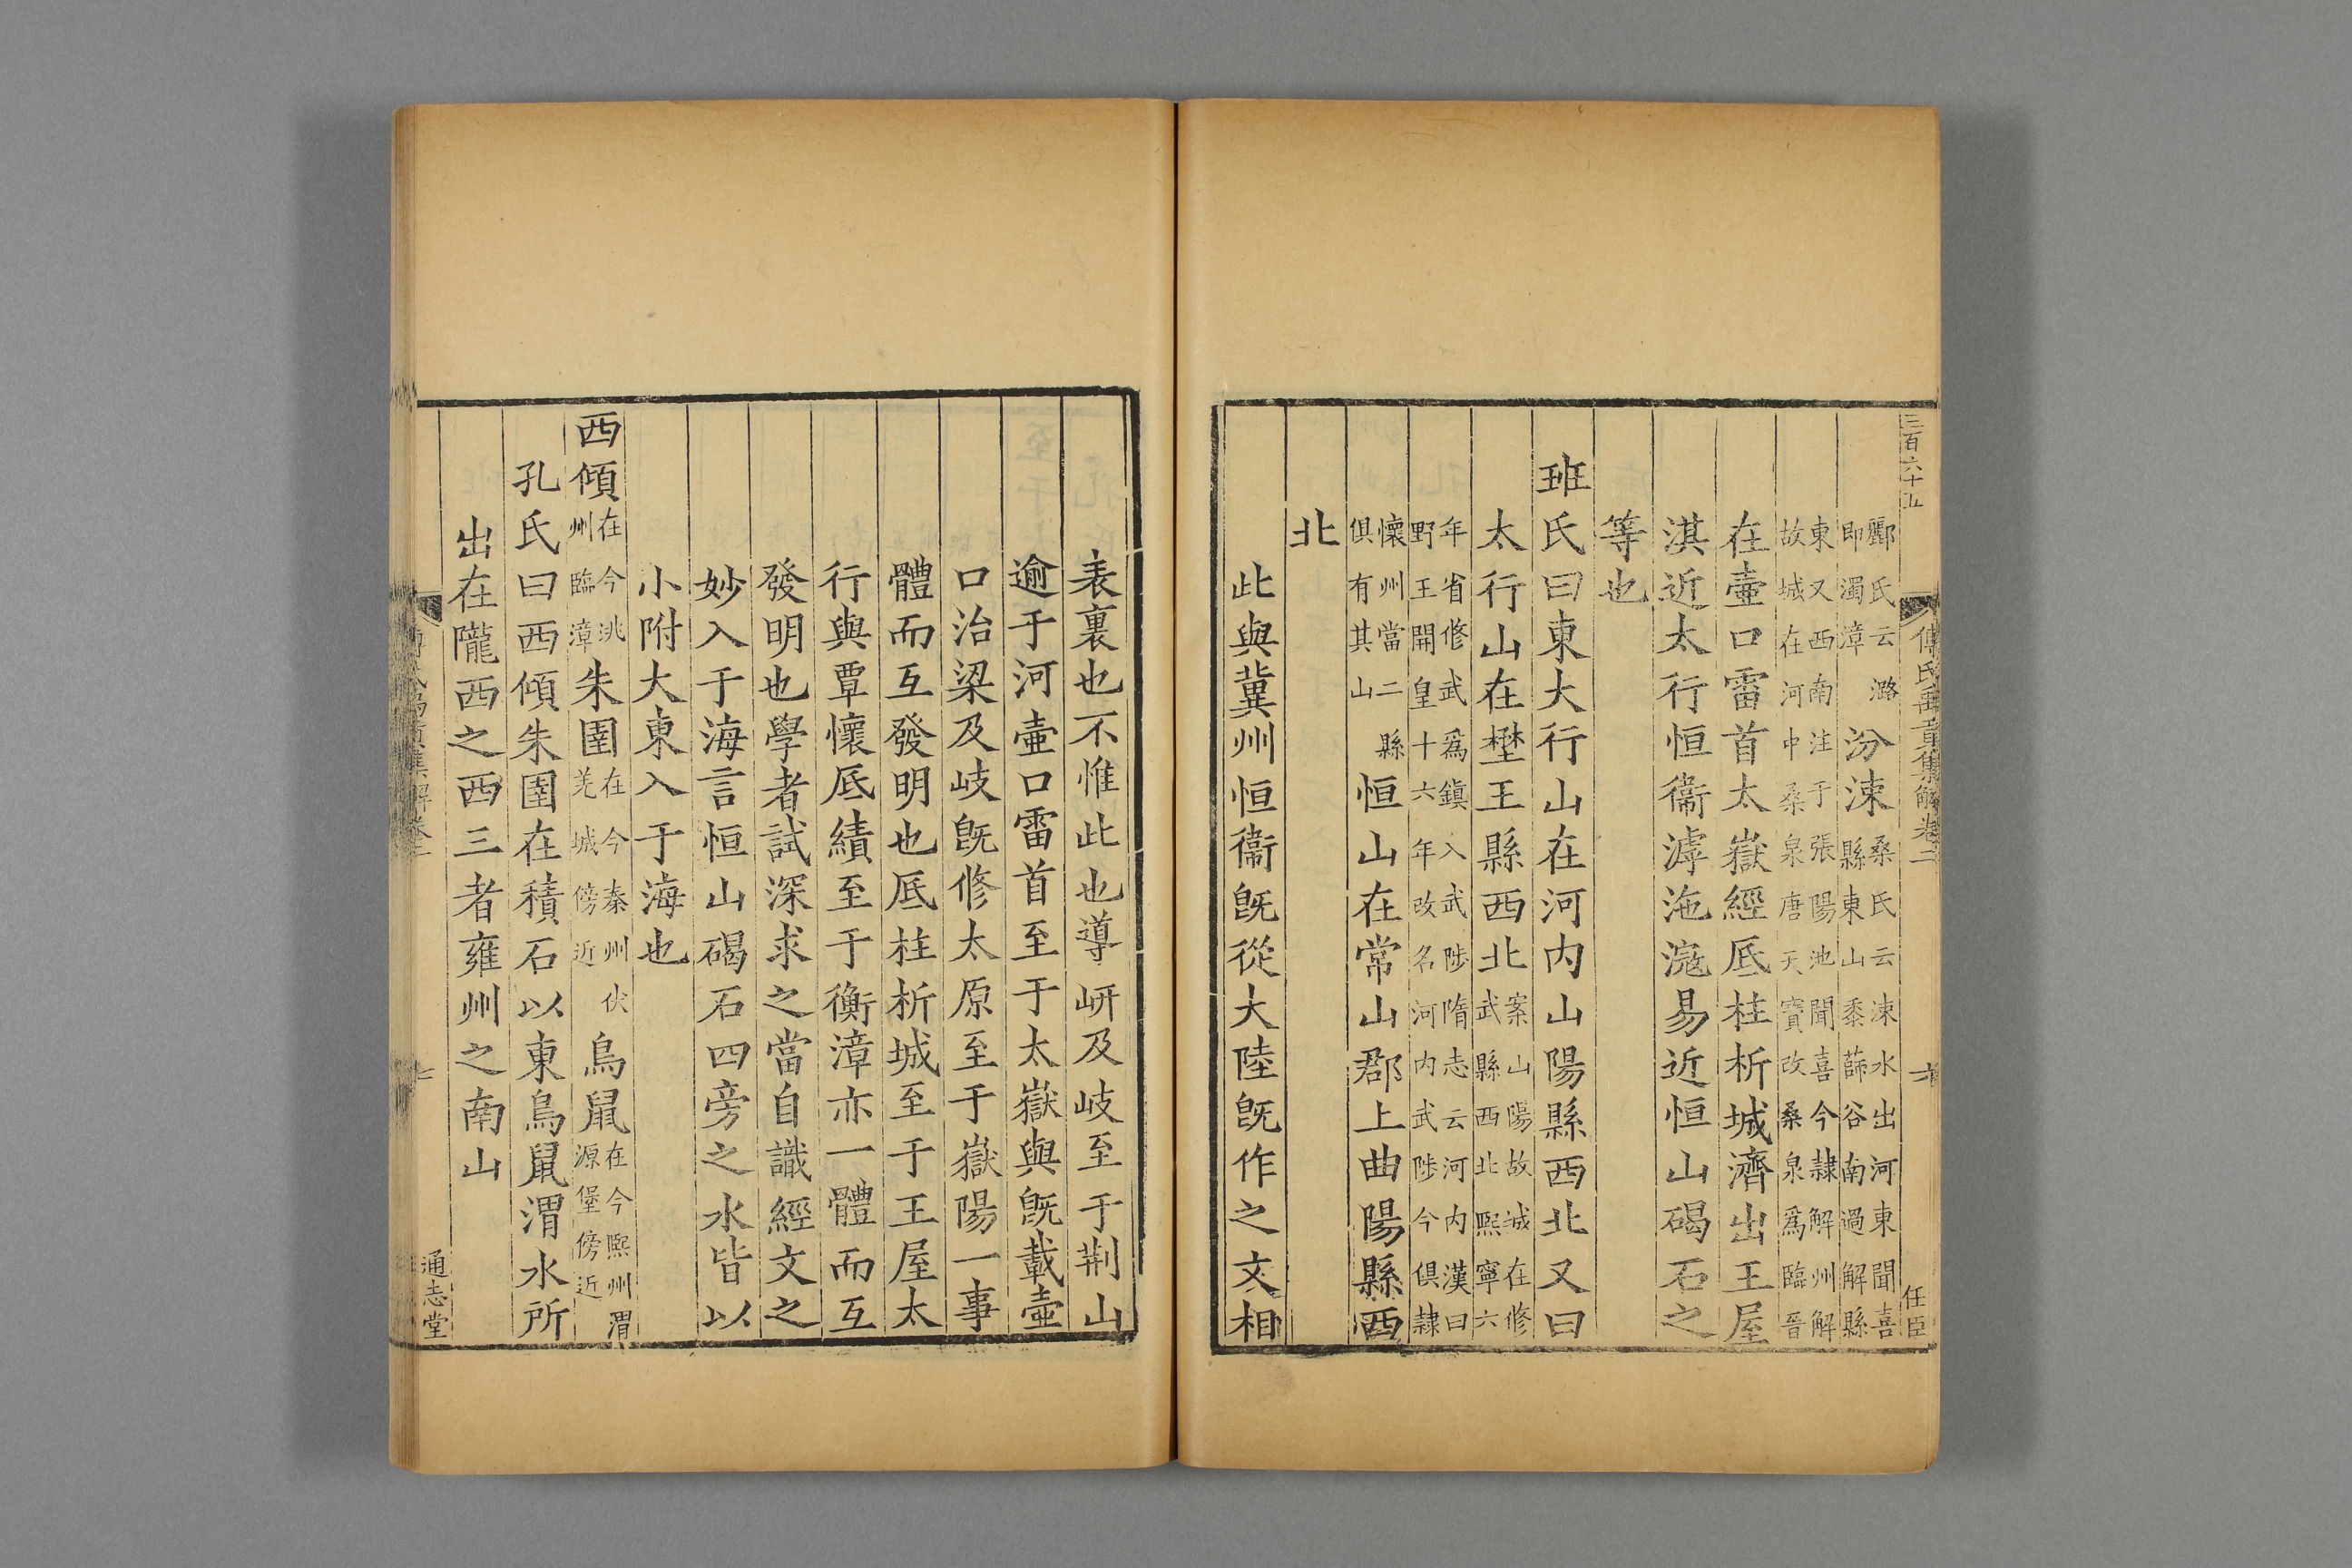 三百六十五
傅氏禹貢集解卷二
六
任臣
酈氏云潞
即濁漳
汾涑
桑氏云涑水出河東聞喜
縣東山黍薛谷南過解縣
東又西南注于張陽池聞喜今隷解州解
故城在河中桑泉唐天寶改桑泉爲臨晉
在壷口雷首太嶽經底柱析城濟出王屋
淇近太行恒衞滹沲滱易近恒山碣石之
等也
班氏曰東大行山在河内山陽縣西北又曰
太行山在壄王縣西北
案山陽故城在修
武縣西北熙寧六
年省修武爲鎭入武陟隋志云河内漢曰
野王開皇十六年改名河内武陟今俱隷
懷州當二縣
俱有其山
恒山在常山郡上曲陽縣西
北
此與冀州恒衞既從大陸既作之文相
表裏也不惟此也導岍及岐至于荆山
逾于河壷口雷首至于太嶽與既載壷
口治梁及岐旣修太原至于嶽陽一事
體而互發明也底柱析城至于王屋太
行與覃懷底績至于衡漳亦一體而互
發明也學者試深求之當自識經文之
妙入于海言恒山碣石四旁之水皆以
小附大東入于海也
西傾
在今洮
州臨漳
朱圉
在今秦州伏
羌城傍近
鳥鼠
在今熙州渭
源堡傍近
孔氏曰西傾朱圉在積石以東鳥鼠渭水所
出在隴西之西三者雍州之南山
七
通志堂